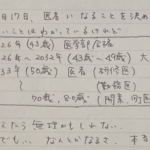 月17日、医者になることを決め
いことはわかっているけれど
26年(43歳) 医学部合格
26年~2032年(43歳~49歳) 大
33年(50歳) 医者(研修医)
(勤務医)
70歳、80歳(開業、町医
たら無理かもしれない。
でも、なんとかなるさ。本当